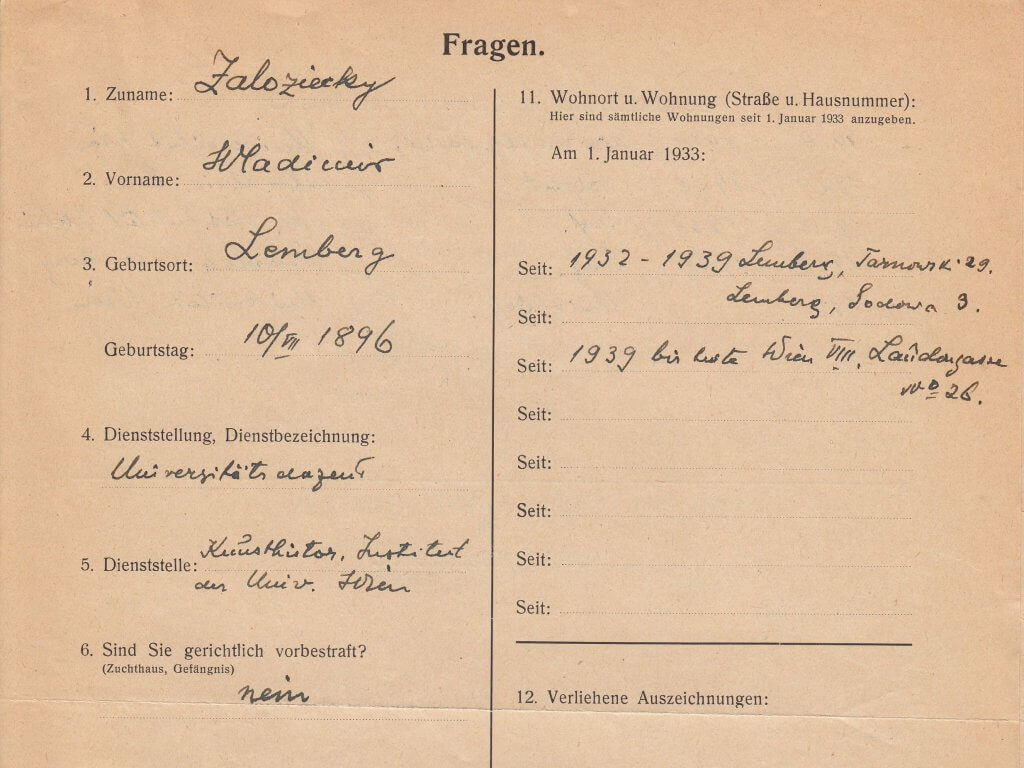 Fragen.
1. Zuname: Zaloziecky
2. Vorname: Wladimir
3. Geburtsort: Lemberg
Geburtstag: 10/VII 1896
4. Dienststellung, Dienstbezeichnung:
Universitätsdozent
5. Dienststelle: Kunsthistor. Institut
der Univ. Wien
6. Sind Sie gerichtlich vorbestraft?
(Zuchthaus, Gefängnis)
nein
11. Wohnort u. Wohnung (Straße u. Hausnummer):
Hier sind sämtliche Wohnungen seit 1. Januar 1933 anzugeben.
Am 1. Januar 1933:
Seit: 1932 - 1939 Lemberg, Tarnowski 29.
Lemberg, 3.
Seit:
Seit: 1939 bis heute Wien VIII. Laudongasse
No 26.
Seit:
Seit:
Seit:
Seit:
Seit:
12. Verliehene Auszeichnungen: